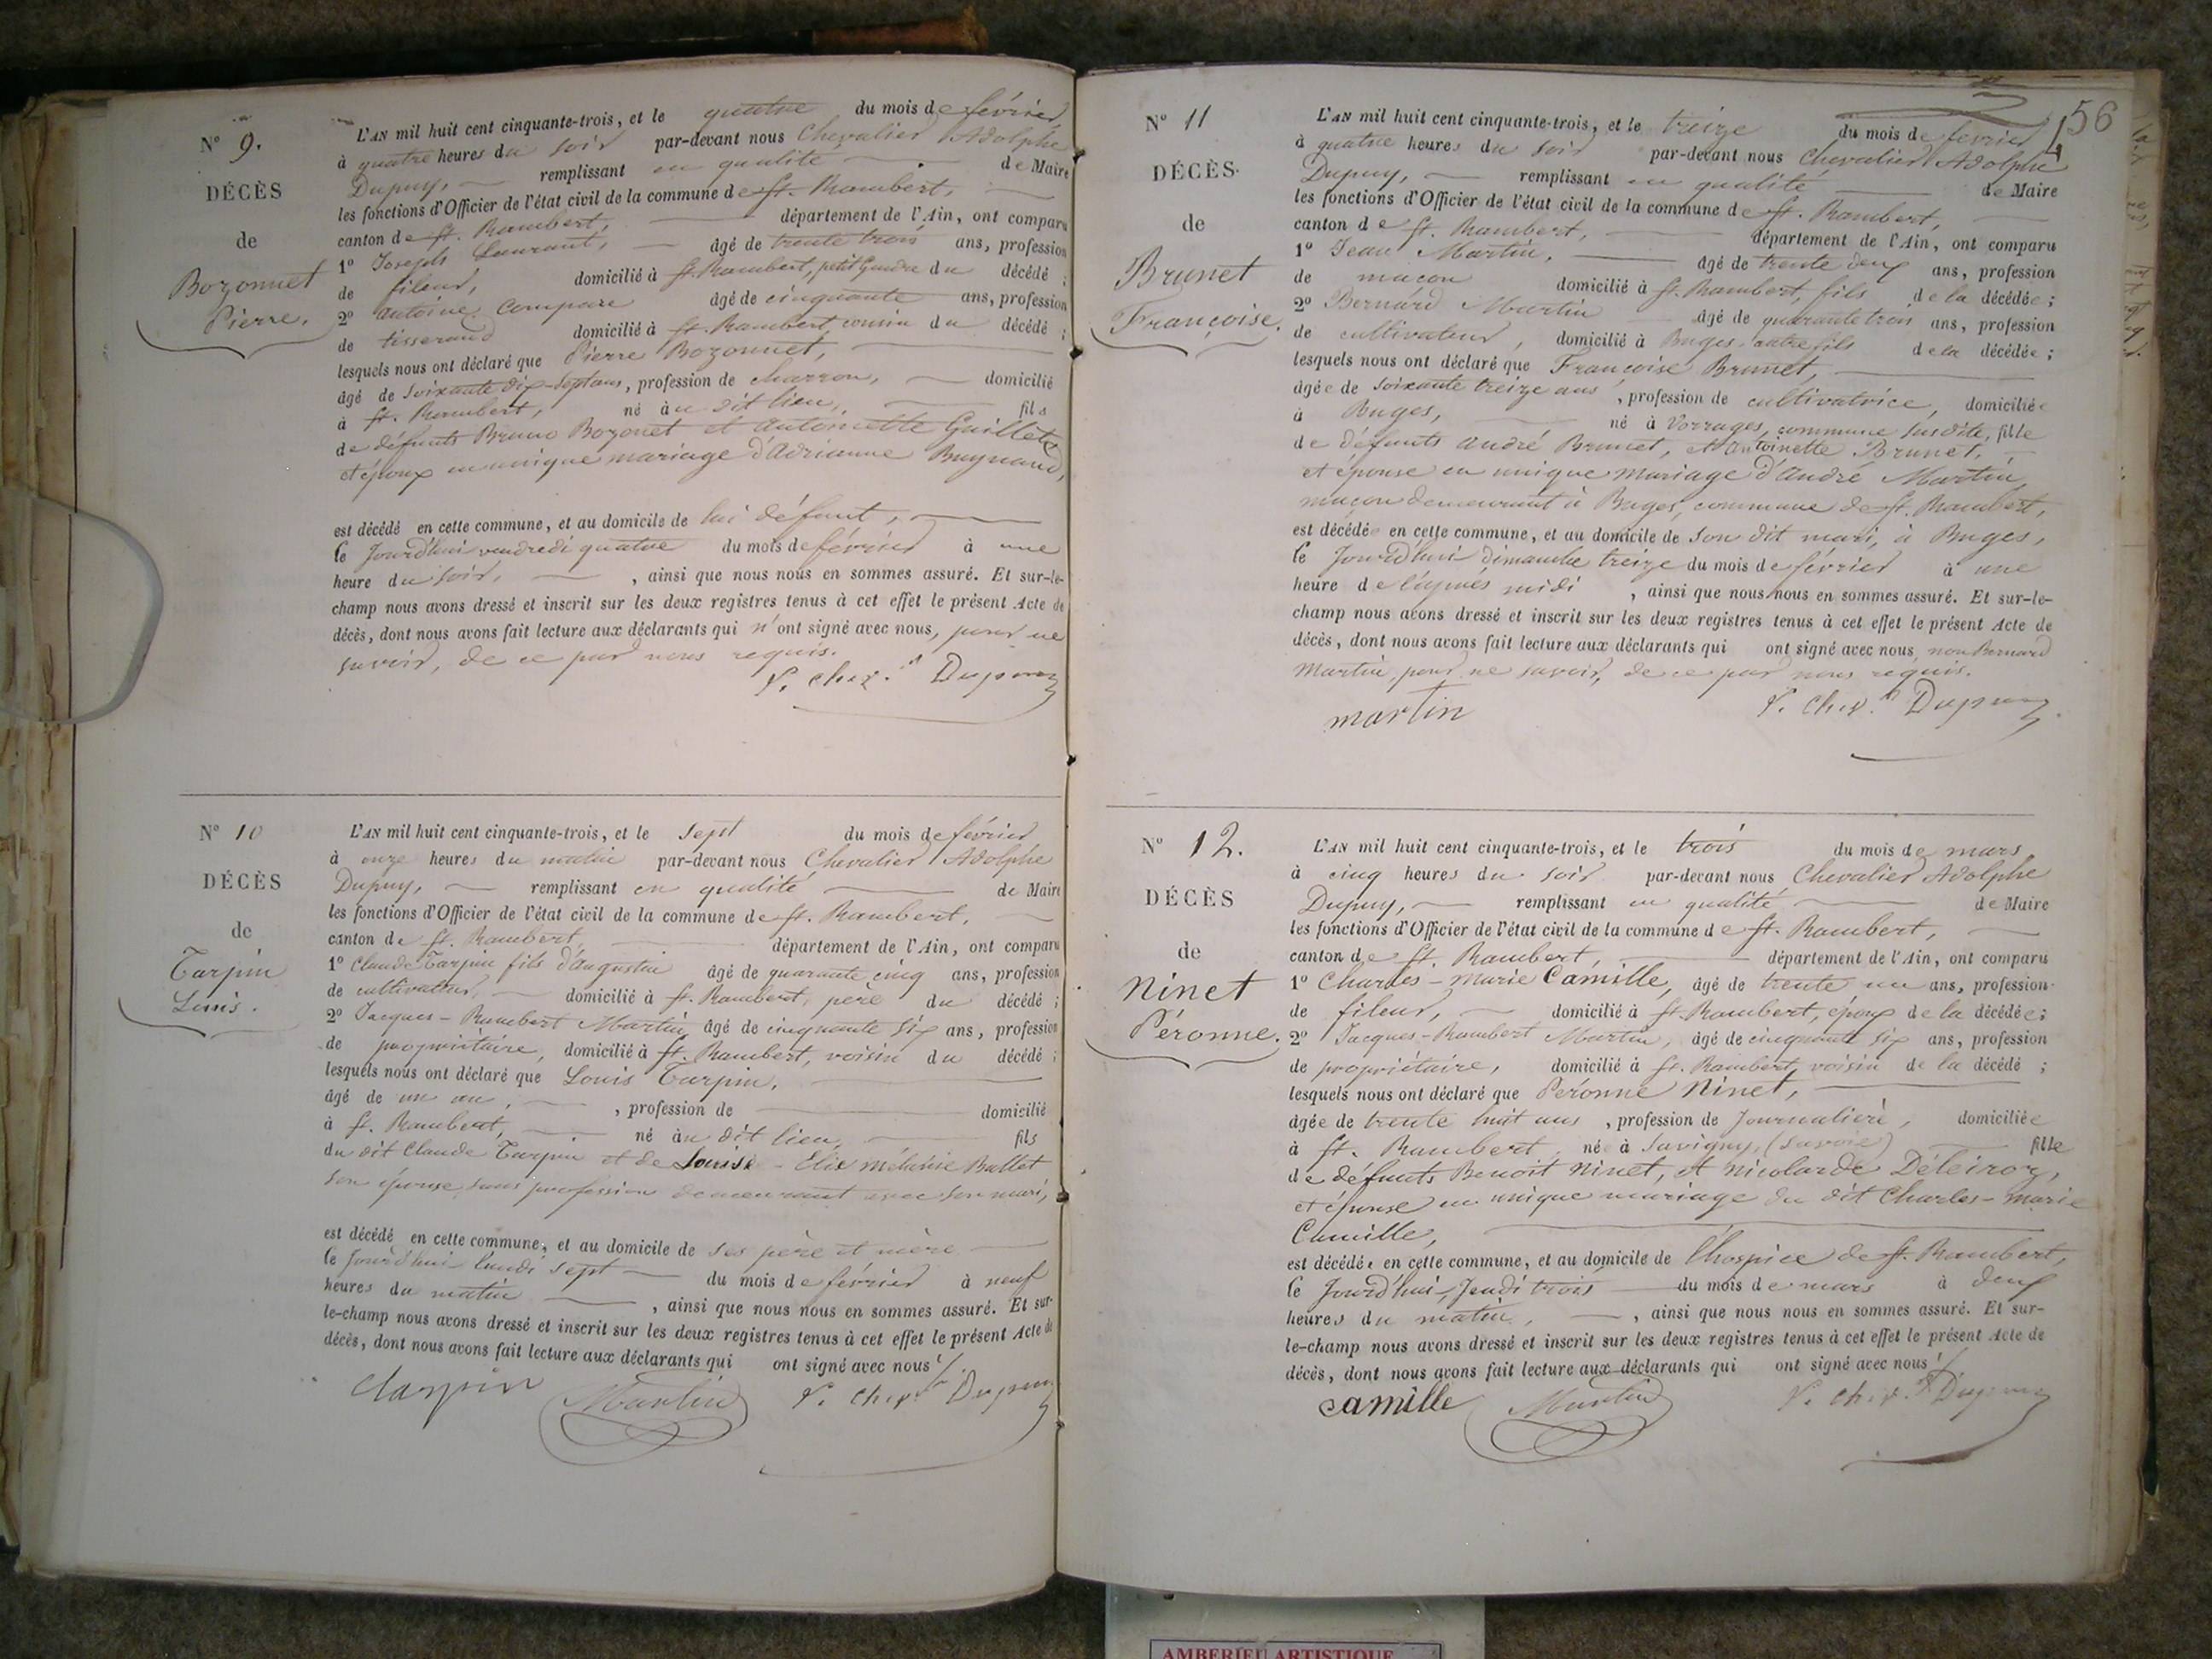 N° 9.
DÉCÈS
de
Bozonnet
Pierre.
L'AN mil huit cent cinquante-trois, et le quatre du mois de février,
à quatre heures du soir par-devant nous Chevalier Adolphe
Dupuy, remplissant en qualité de Maire
les fonctions d'Officier de l'état civil de la commune de St. Rambert,
canton de St. Rambert, département de l'Ain, ont comparu
1° Joseph Laurant, âgé de trente trois ans, profession
de fileur, domicilié à St. Rambert, petit Gendre du décédé ;
2° antoine Compare âgé de cinquante ans, profession
de tisserand domicilié à St. Rambert, cousin du décédé ;
lesquels nous ont déclaré que Pierre Bozonnet,
âgé de soixante dix-sept ans, profession de charron, domicilié
à St. Rambert, né àu dit lieu, fils
de défunts Bruno Bozonet et Antoinette Guilleta
et époux en unique mariage d'Adrianne Buynand,
est décédé en cette commune, et au domicile de lui défunt,
le jourd'hui vendredi quatre du mois de février à une
heure du soir, , ainsi que nous nous en sommes assuré. Et sur-le-
champ nous avons dressé et inscrit sur les deux registres tenus à cet effet le présent Acte de
décès, dont nous avons fait lecture aux déclarants qui n'ont signé avec nous, pour ne
savoir, de ce par nous requis.
Dupuy
N° 10
DÉCÈS
de
Tarpin
Louis.
L'AN mil huit cent cinquante-trois, et le sept du mois de février
à onze heures du matin par-devant nous Chevalier Adolphe
Dupuy, remplissant en qualité de Maire
les fonctions d'Officier de l'état civil de la commune de St. Rambert,
canton de St. Rambert département de l'Ain, ont comparu
1° Claude Tarpin fils d'augustin âgé de quarante cinq ans, profession
de cultivateur, domicilié à St. Rambert, père du décédé ;
2° Jacques-Rambert Martin, âgé de cinquante six ans, profession
de propriétaire, domicilié à St. Rambert, voisin du décédé ;
lesquels nous ont déclaré que Louis Tarpin,
âgé de un an, , profession de domicilié
à St. Rambert, né àu dit lieu, fils
du dit Claude Tarpin et de Louise-Elie mélanie Ballet
son épouse, sans profession demeurant avec son mari,
est décédé en cette commune, et au domicile de ses père et mère
le jourd'hui lundi sept du mois de février à neuf
heures du matin , ainsi que nous nous en sommes assuré. Et sur-
le-champ nous avons dressé et inscrit sur les deux registres tenus à cet effet le présent Acte de
décès, dont nous avons fait lecture aux déclarants qui ont signé avec nous
Martin Dupuy
56
N° 11
DÉCÈS
de
Brunet
Françoise.
L'AN mil huit cent cinquante-trois, et le treize du mois de fevrier
à quatre heures du soir par-devant nous Chevalier Adolphe
Dupuy, remplissant en qualité de Maire
les fonctions d'Officier de l'état civil de la commune de St. Rambert,
canton de St. Rambert, département de l'Ain, ont comparu
1° Jean Martin, âgé de trente deux ans, profession
de maçon domicilié à St. Rambert, fils de la décédée ;
2° Bernard Martin âgé de quarante trois ans, profession
de cultivateur, domicilié à Buges autre fils de la décédée ;
lesquels nous ont déclaré que Françoise Brunet,
âgée de soixante treize ans, profession de cultivatrice, domiciliée
à Buges, né à Vorrages, commune susdite, fille
de défunts andré Brunet, et Antoinette Brunet,
et épouse en unique mariage d'andré Martin,
maçon demeurant à Buges, commune de St. Rambert,
est décédée en cette commune, et au domicile de son dit mari, à Buges,
le jourd'hui dimanche treize du mois de février à une
heure de l'après midi , ainsi que nous nous en sommes assuré. Et sur-le-
champ nous avons dressé et inscrit sur les deux registres tenus à cet effet le présent Acte de
décès, dont nous avons fait lecture aux déclarants qui ont signé avec nous, non Bernard
Martin, pour ne savoir, de ce par nous requis.
martin Dupuy
N° 12.
DÉCÈS
de
Ninet
Péronne.
L'AN mil huit cent cinquante-trois, et le trois du mois de mars
à cinq heures du soir par-devant nous Chevalier Adolphe
Dupuy, remplissant en qualité de Maire
les fonctions d'Officier de l'état civil de la commune de St. Rambert,
canton de St. Rambert, département de l'Ain, ont comparu
1° Charles-Marie Camille, âgé de trente un ans, profession
de fileur, domicilié à St. Rambert, époux de la décédée ;
2° Jacques-Rambert Martin, âgé de cinquante six ans, profession
de propriétaire, domicilié à St. Rambert, voisin de la décédé ;
lesquels nous ont déclaré que Péronne Ninet,
âgée de trente huit ans, profession de Journalière, domiciliée
à St. Rambert, née à Savigny, (Savoie) fille
de défunts Benoit Ninet, et Nicolarde Déleiroz,
et épouse en unique mariage du dit Charles-marie
Camille,
est décédée en cette commune, et au domicile de l'hospice de St. Rambert,
le jourd'hui, Jeudi trois du mois de mars à deux
heures du matin, , ainsi que nous nous en sommes assuré. Et sur-
le-champ nous avons dressé et inscrit sur les deux registres tenus à cet effet le présent Acte de
décès, dont nous avons fait lecture aux déclarants qui ont signé avec nous
camille Martin Dupuy
AMBERIEU ARTISTIQUE